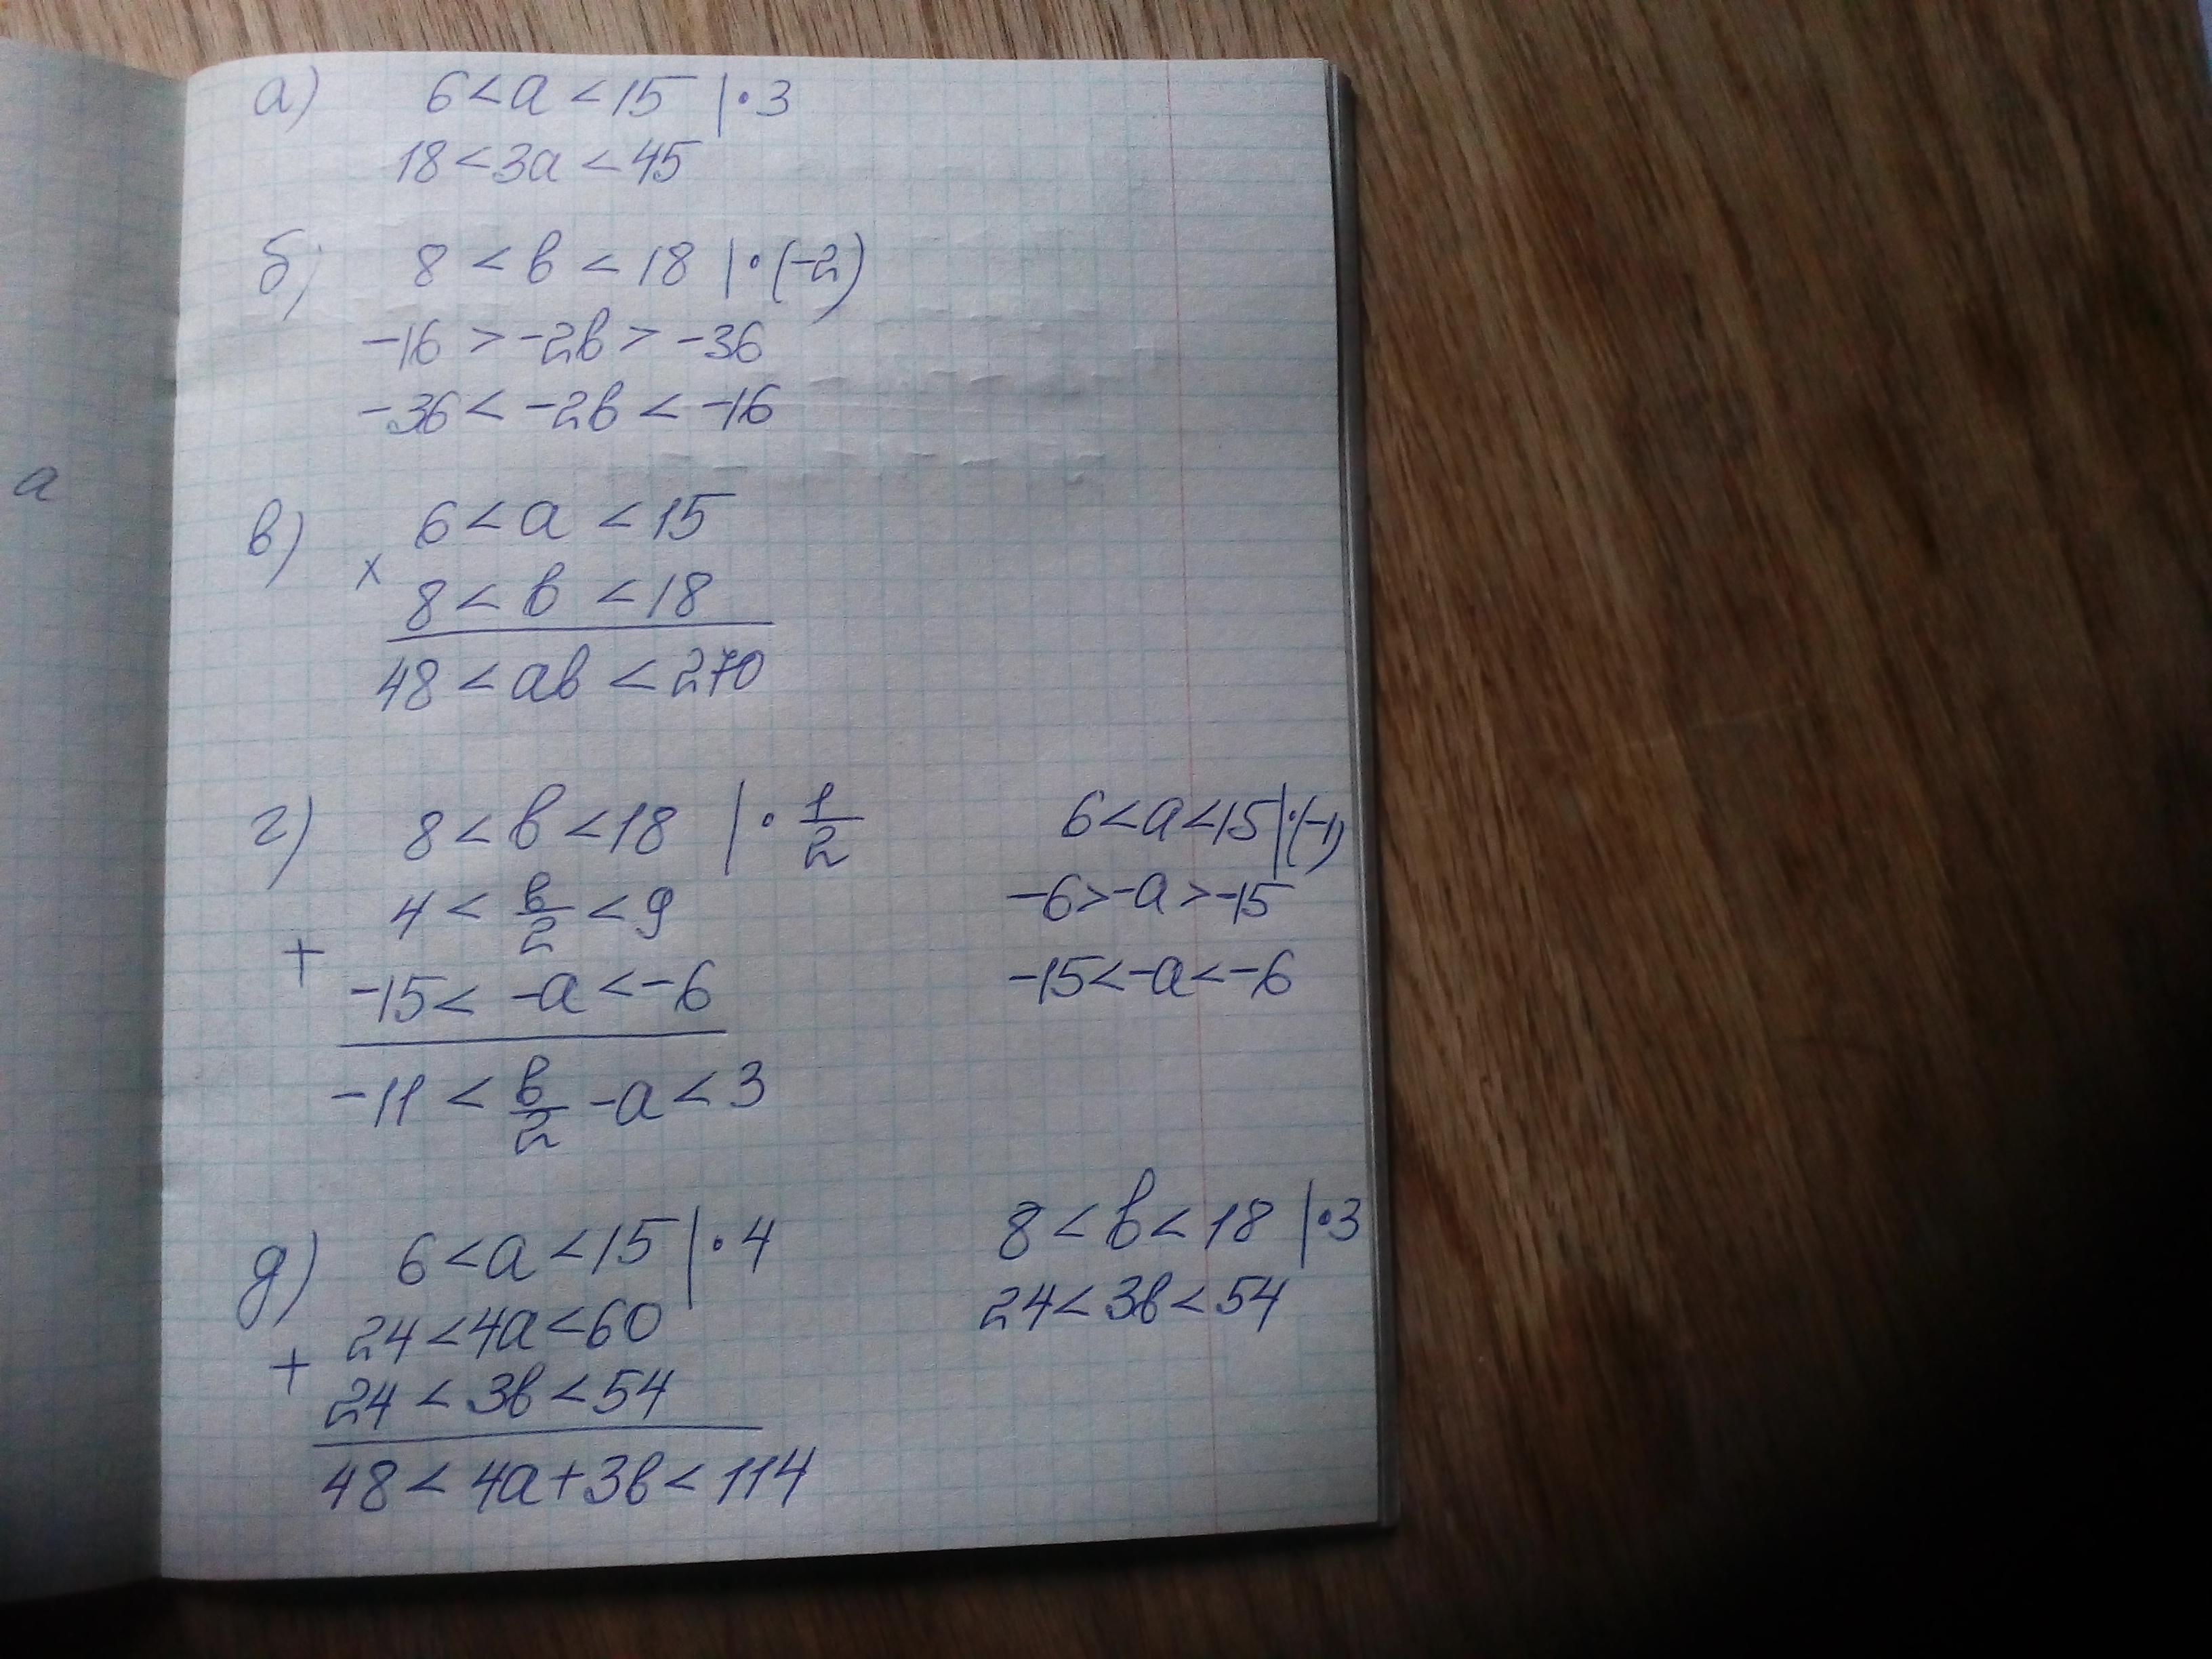 a
а) 6 < a < 15 | · 3
18 < 3a < 45
б) 8 < b < 18 | · (-2)
-16 > -2b > -36
-36 < -2b < -16
в) 6 < a < 15
×
8 < b < 18
48 < ab < 270
г) 8 < b < 18 | · 1/2
4 < b/2 < 9
+
-15 < -a < -6
-11 < b/2 - a < 3
6 < a < 15 | · (-1)
-6 > -a > -15
-15 < -a < -6
д) 6 < a < 15 | · 4
24 < 4a < 60
+
24 < 3b < 54
48 < 4a + 3b < 114
8 < b < 18 | · 3
24 < 3b < 54